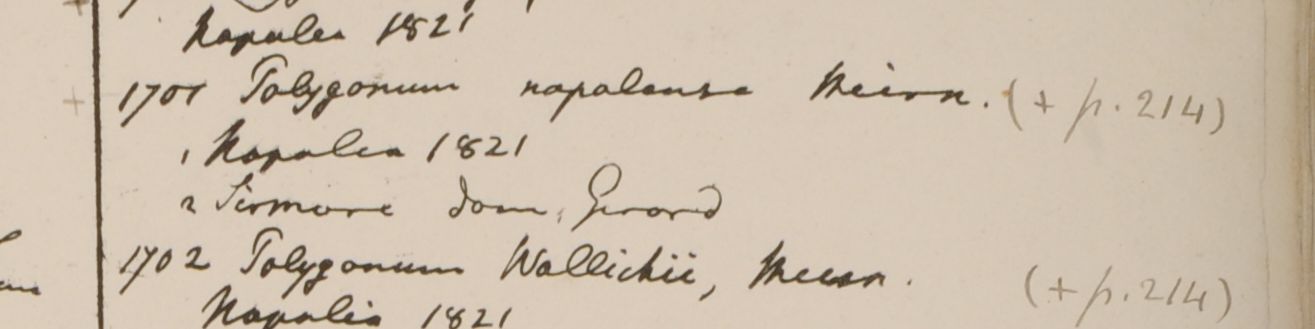 Napalea 1821
1701 Polygonum napalense Meisn. (+ p. 214)
1 Napalea 1821
2 Sirmore dom. Gerard
1702 Polygonum Wallichii, Meisn. (+ p. 214)
Napalia 1821